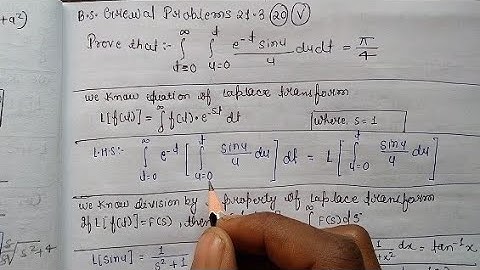 +a²)
B.S. Grewal Problems 21.3 (20) (V)
Prove that:- ∫_{t=0}^{∞} ∫_{u=0}^{t} (e^{-t} sinu)/u du dt = π/4
We know equation of Laplace transform
L[f(t)] = ∫_0^∞ f(t)·e^{-st} dt where, s=1
L.H.S:- ∫_{t=0}^{∞} e^{-t} [∫_{u=0}^{t} sinu/u du] dt = L[∫_{u=0}^{t} sinu/u du]
We know division by t property of Laplace transform
If L[f(t)] = F(s), then ∫^∞ F(s)ds
L[sinu] = 1/(s²+1) dx = tan⁻¹x
s²+4